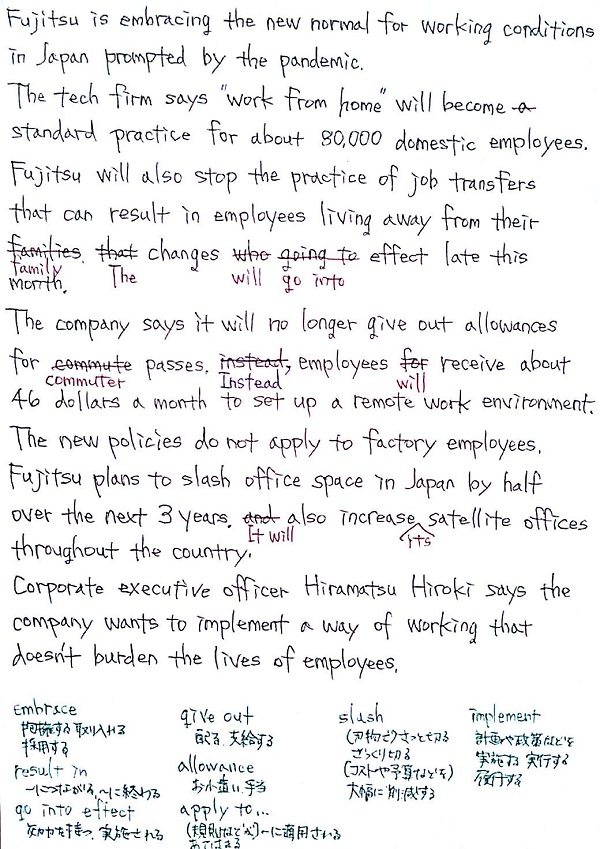 Fujitsu is embracing the new normal for working conditions
in Japan prompted by the pandemic.
The tech firm says "work from home" will become a
standard practice for about 80,000 domestic employees.
Fujitsu will also stop the practice of job transfers
that can result in employees living away from their
families. that changes who going to effect late this
family The will go into
month.
The company says it will no longer give out allowances
for commute passes. instead, employees for receive about
commuter Instead will
46 dollars a month to set up a remote work environment.
The new policies do not apply to factory employees.
Fujitsu plans to slash office space in Japan by half
over the next 3 years. and also increase satellite offices
It will its
throughout the country.
Corporate executive officer Hiramatsu Hiroki says the
company wants to implement a way of working that
doesn't burden the lives of employees.
embrace
抱擁する 取り入れる
採用する
result in
〜につながる、〜に終わる
go into effect
効力を持つ、実施される
give out
配る、支給する
allowance
お小遣い、手当
apply to...
(規則などが)〜に適用される
あてはまる
slash
(刃物で)さっと切る
ざっくり切る
(コストや予算などを)
大幅に削減する
implement
計画や政策などを
実施する 実行する
履行する